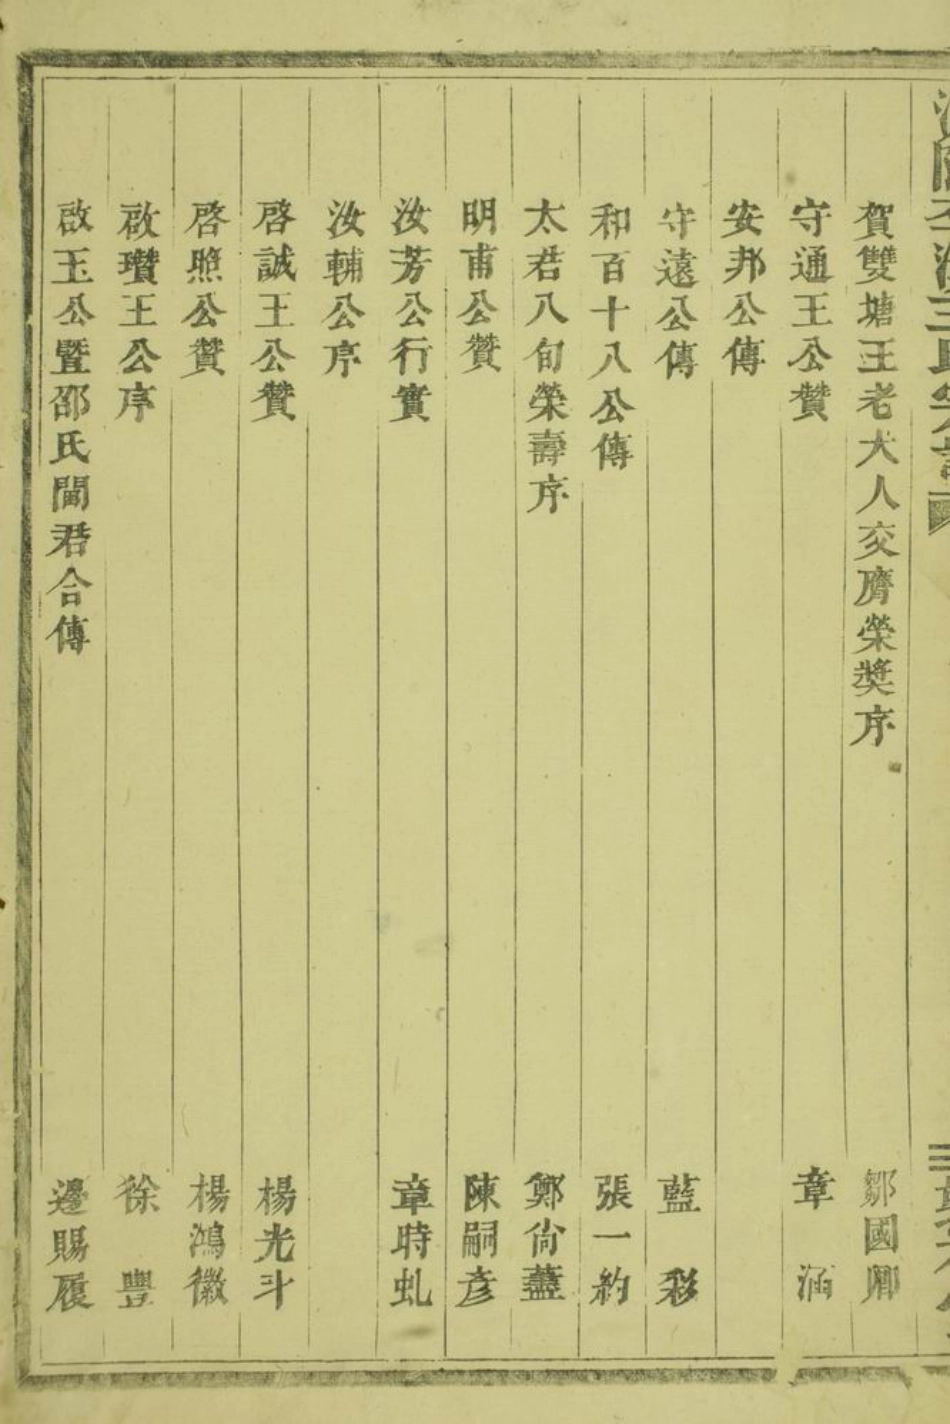 賀雙塘王老大人交膺榮獎序 鄒國卿
守通王公贊 章涵
安邦公傳
守遠公傳 藍彩
和百十八公傳 張一約
太君八旬榮壽序 鄭尙藎
明甫公贊 陳嗣彥
汝芳公行實 章時虬
汝輔公序
啓誠王公贊 楊光斗
啓照公贊 楊鴻徽
啟瓚王公序 徐豐
啟玉公暨邵氏閫君合傳 邊賜履